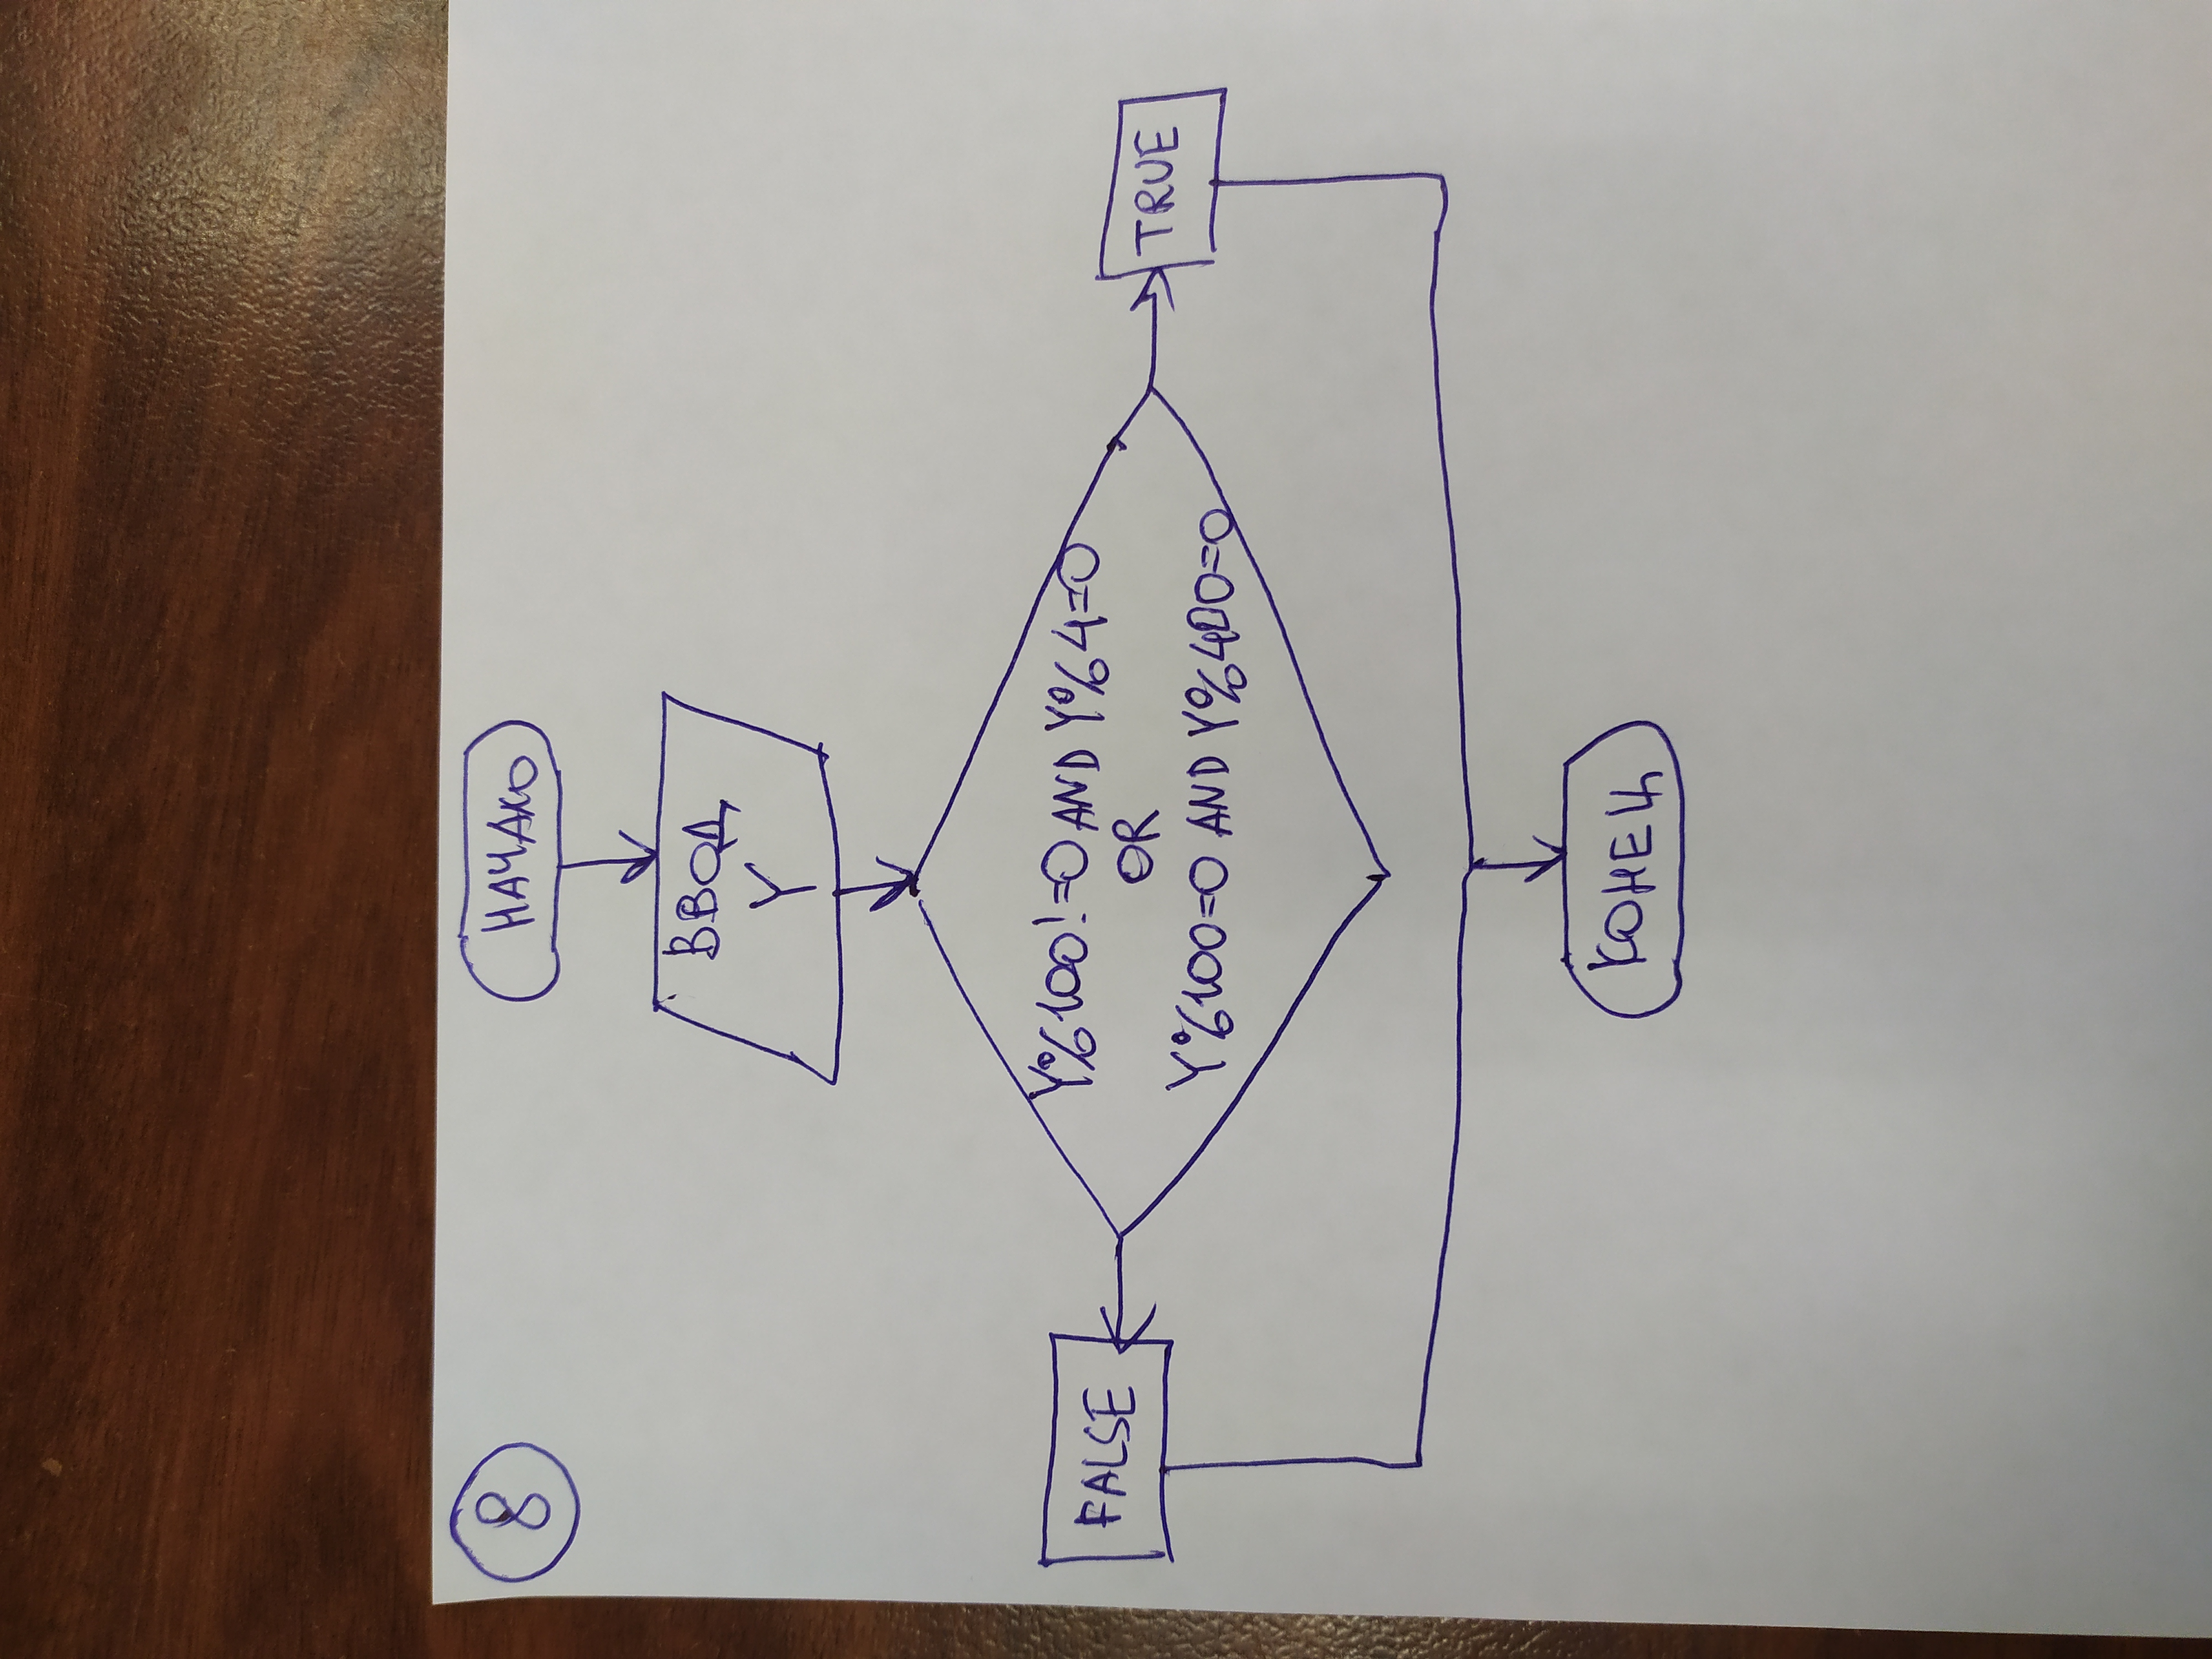 8
НАЧАЛО
ВВОД
Y
Y%100!=0 AND Y%4=0
OR
Y%100=0 AND Y%400=0
FALSE
TRUE
КОНЕЦ